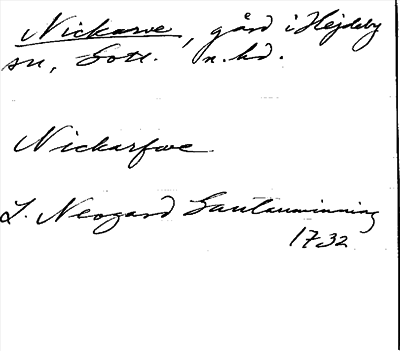 Nickarve, gård i Hejdeby
sn, Gotl. n. hd.
Nickarfwe
L. Neogard Gautauminning
1732